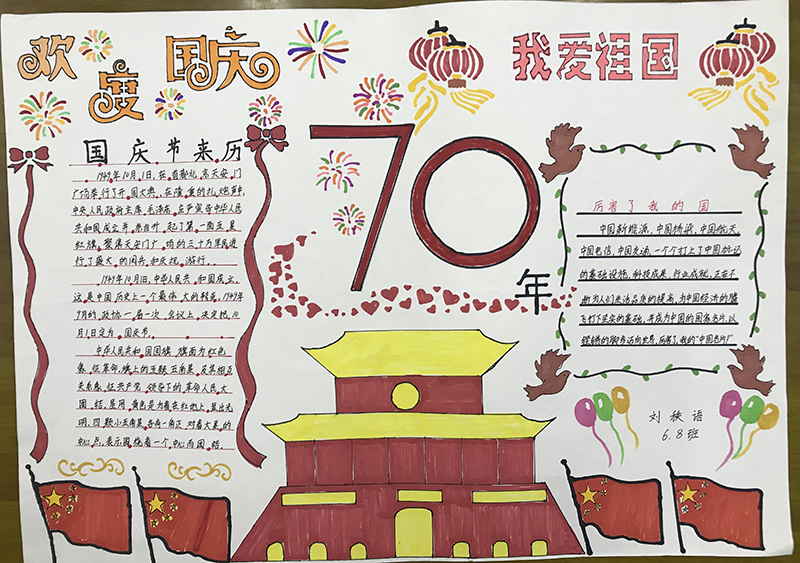 欢度国庆
我爱祖国
70年
国庆节来历
1949年10月1日,在首都北京天安门
广场举行了开国大典,在隆重的礼炮声中,
中央人民政府主席毛泽东庄严宣告中华人民
共和国成立并亲自升起了第一面五星
红旗。聚集天安门广场的三十万军民进
行了盛大的阅兵和庆祝游行。
1949年10月1日,中华人民共和国成立,
这是中国历史上一个最伟大的转变。1949年
9月的政协一届一次会议上决定把10
月1日定为国庆节。
中华人民共和国国旗旗面为红色,
象征革命,旗上的五颗五角星及其相互
关系象征共产党领导下的革命人民大
团结,星用黄色是为着在红地上显出光
明,四颗小五角星各有一角正对着大星的
中心点,表示围绕着一个中心而团结。
厉害了我的国
中国新能源,中国桥梁,中国航天,
中国电信,中国交通,一个个打上了中国标记
的基础设施,科技成果,行业成就,正在不
断为人们生活品质的提高,为中国经济的腾
飞打下坚实的基础,并成为中国的国家名片,以
铿锵的脚步迈向世界,厉害了,我的"中国名片"
刘秧语
6.8班